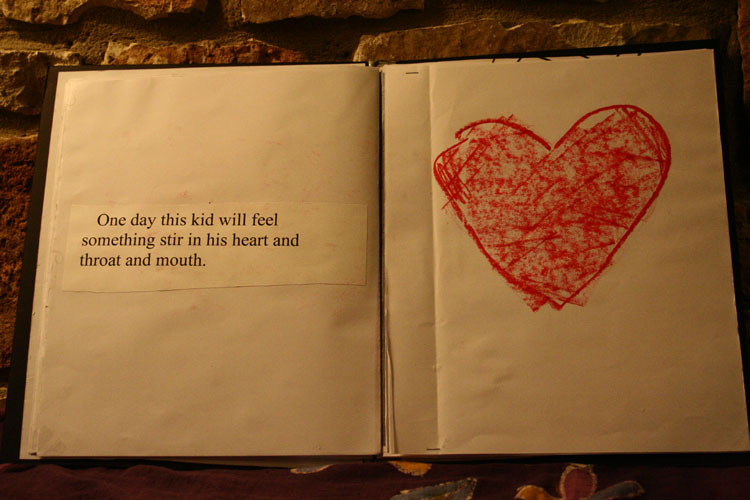 One day this kid will feel
something stir in his heart and
throat and mouth.